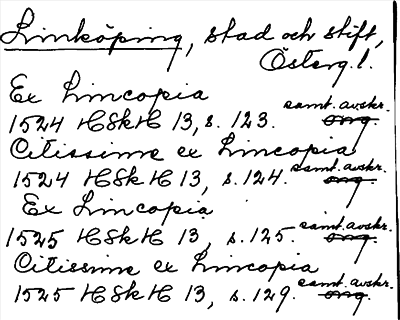 Linköping, stad och stift,
Österg.l.
Ex Lincopia
1524 HSkH 13, s. 123. samt. avskr. orig.
Citissime ex Lincopia
1524 HSkH 13, s. 124. samt. avskr. orig.
Ex Lincopia
1525 HSkH 13, s. 125. samt. avskr. orig.
Citissime ex Lincopia
1525 HSkH 13, s. 129. samt. avskr. orig.